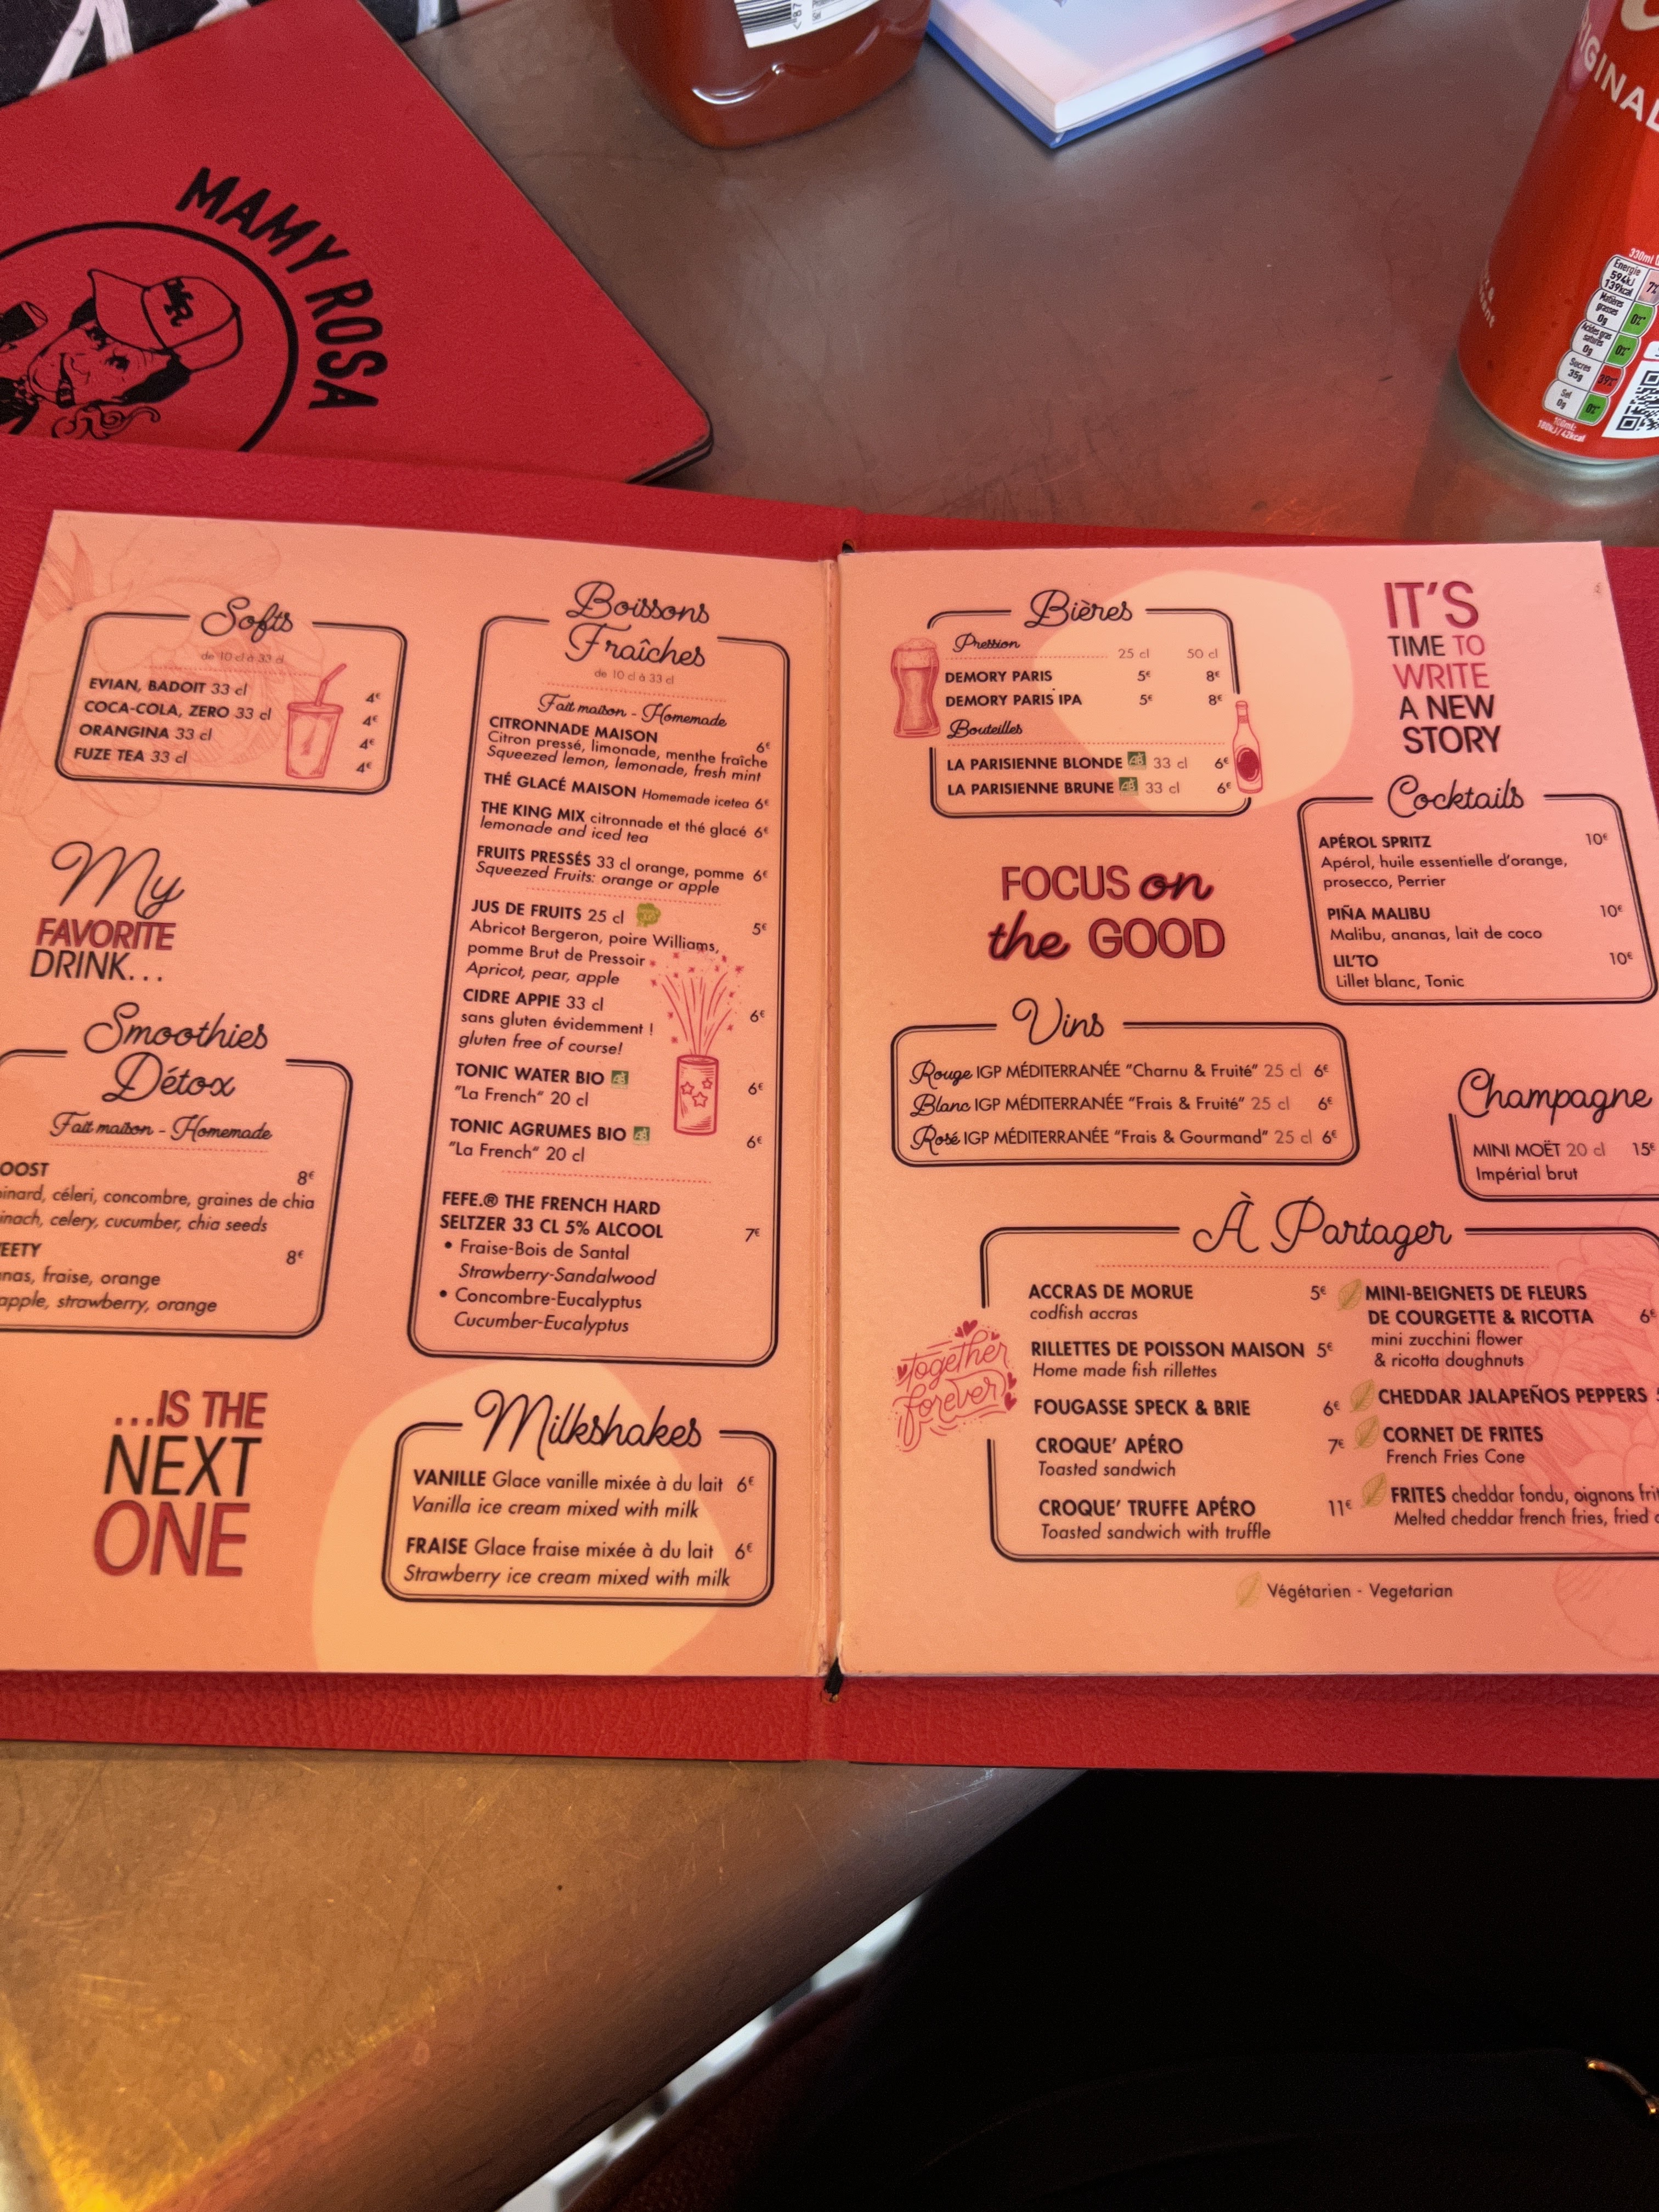 MAMY ROSA
MR
ORIGINAL
330ml
Energie
594kJ
139kcal
7%
Matières
grasses
0g
0%
Acides gras
saturés
0g
0%
Sucres
35g
39%
Sel
0g
0%
100mL:
180kJ/42kcal
Softs
de 10 cl à 33 cl
EVIAN, BADOIT 33 cl 4€
COCA-COLA, ZERO 33 cl 4€
ORANGINA 33 cl 4€
FUZE TEA 33 cl 4€
My
FAVORITE
DRINK...
Smoothies
Détox
Fait maison - Homemade
OOST 8€
inard, céleri, concombre, graines de chia
inach, celery, cucumber, chia seeds
EETY 8€
nas, fraise, orange
apple, strawberry, orange
...IS THE
NEXT
ONE
Boissons
Fraîches
de 10 cl à 33 cl
Fait maison - Homemade
CITRONNADE MAISON 6€
Citron pressé, limonade, menthe fraîche
Squeezed lemon, lemonade, fresh mint
THÉ GLACÉ MAISON Homemade icetea 6€
THE KING MIX citronnade et thé glacé 6€
lemonade and iced tea
FRUITS PRESSÉS 33 cl orange, pomme 6€
Squeezed Fruits: orange or apple
JUS DE FRUITS 25 cl 5€
Abricot Bergeron, poire Williams,
pomme Brut de Pressoir
Apricot, pear, apple
CIDRE APPIE 33 cl 6€
sans gluten évidemment !
gluten free of course!
TONIC WATER BIO AB 6€
"La French" 20 cl
TONIC AGRUMES BIO AB 6€
"La French" 20 cl
FEFE.® THE FRENCH HARD
SELTZER 33 CL 5% ALCOOL 7€
• Fraise-Bois de Santal
Strawberry-Sandalwood
• Concombre-Eucalyptus
Cucumber-Eucalyptus
Milkshakes
VANILLE Glace vanille mixée à du lait 6€
Vanilla ice cream mixed with milk
FRAISE Glace fraise mixée à du lait 6€
Strawberry ice cream mixed with milk
Bières
Pression 25 cl 50 cl
DEMORY PARIS 5€ 8€
DEMORY PARIS IPA 5€ 8€
Bouteilles
LA PARISIENNE BLONDE AB 33 cl 6€
LA PARISIENNE BRUNE AB 33 cl 6€
IT'S
TIME TO
WRITE
A NEW
STORY
FOCUS on
the GOOD
Cocktails
APÉROL SPRITZ 10€
Apérol, huile essentielle d'orange,
prosecco, Perrier
PIÑA MALIBU 10€
Malibu, ananas, lait de coco
LIL'TO 10€
Lillet blanc, Tonic
Vins
Rouge IGP MÉDITERRANÉE "Charnu & Fruité" 25 cl 6€
Blanc IGP MÉDITERRANÉE "Frais & Fruité" 25 cl 6€
Rosé IGP MÉDITERRANÉE "Frais & Gourmand" 25 cl 6€
Champagne
MINI MOËT 20 cl 15€
Impérial brut
À Partager
together
forever
ACCRAS DE MORUE 5€
codfish accras
RILLETTES DE POISSON MAISON 5€
Home made fish rillettes
FOUGASSE SPECK & BRIE 6€
CROQUE' APÉRO 7€
Toasted sandwich
CROQUE' TRUFFE APÉRO 11€
Toasted sandwich with truffle
MINI-BEIGNETS DE FLEURS
DE COURGETTE & RICOTTA 6€
mini zucchini flower
& ricotta doughnuts
CHEDDAR JALAPEÑOS PEPPERS
CORNET DE FRITES
French Fries Cone
FRITES cheddar fondu, oignons frit
Melted cheddar french fries, fried
Végétarien - Vegetarian